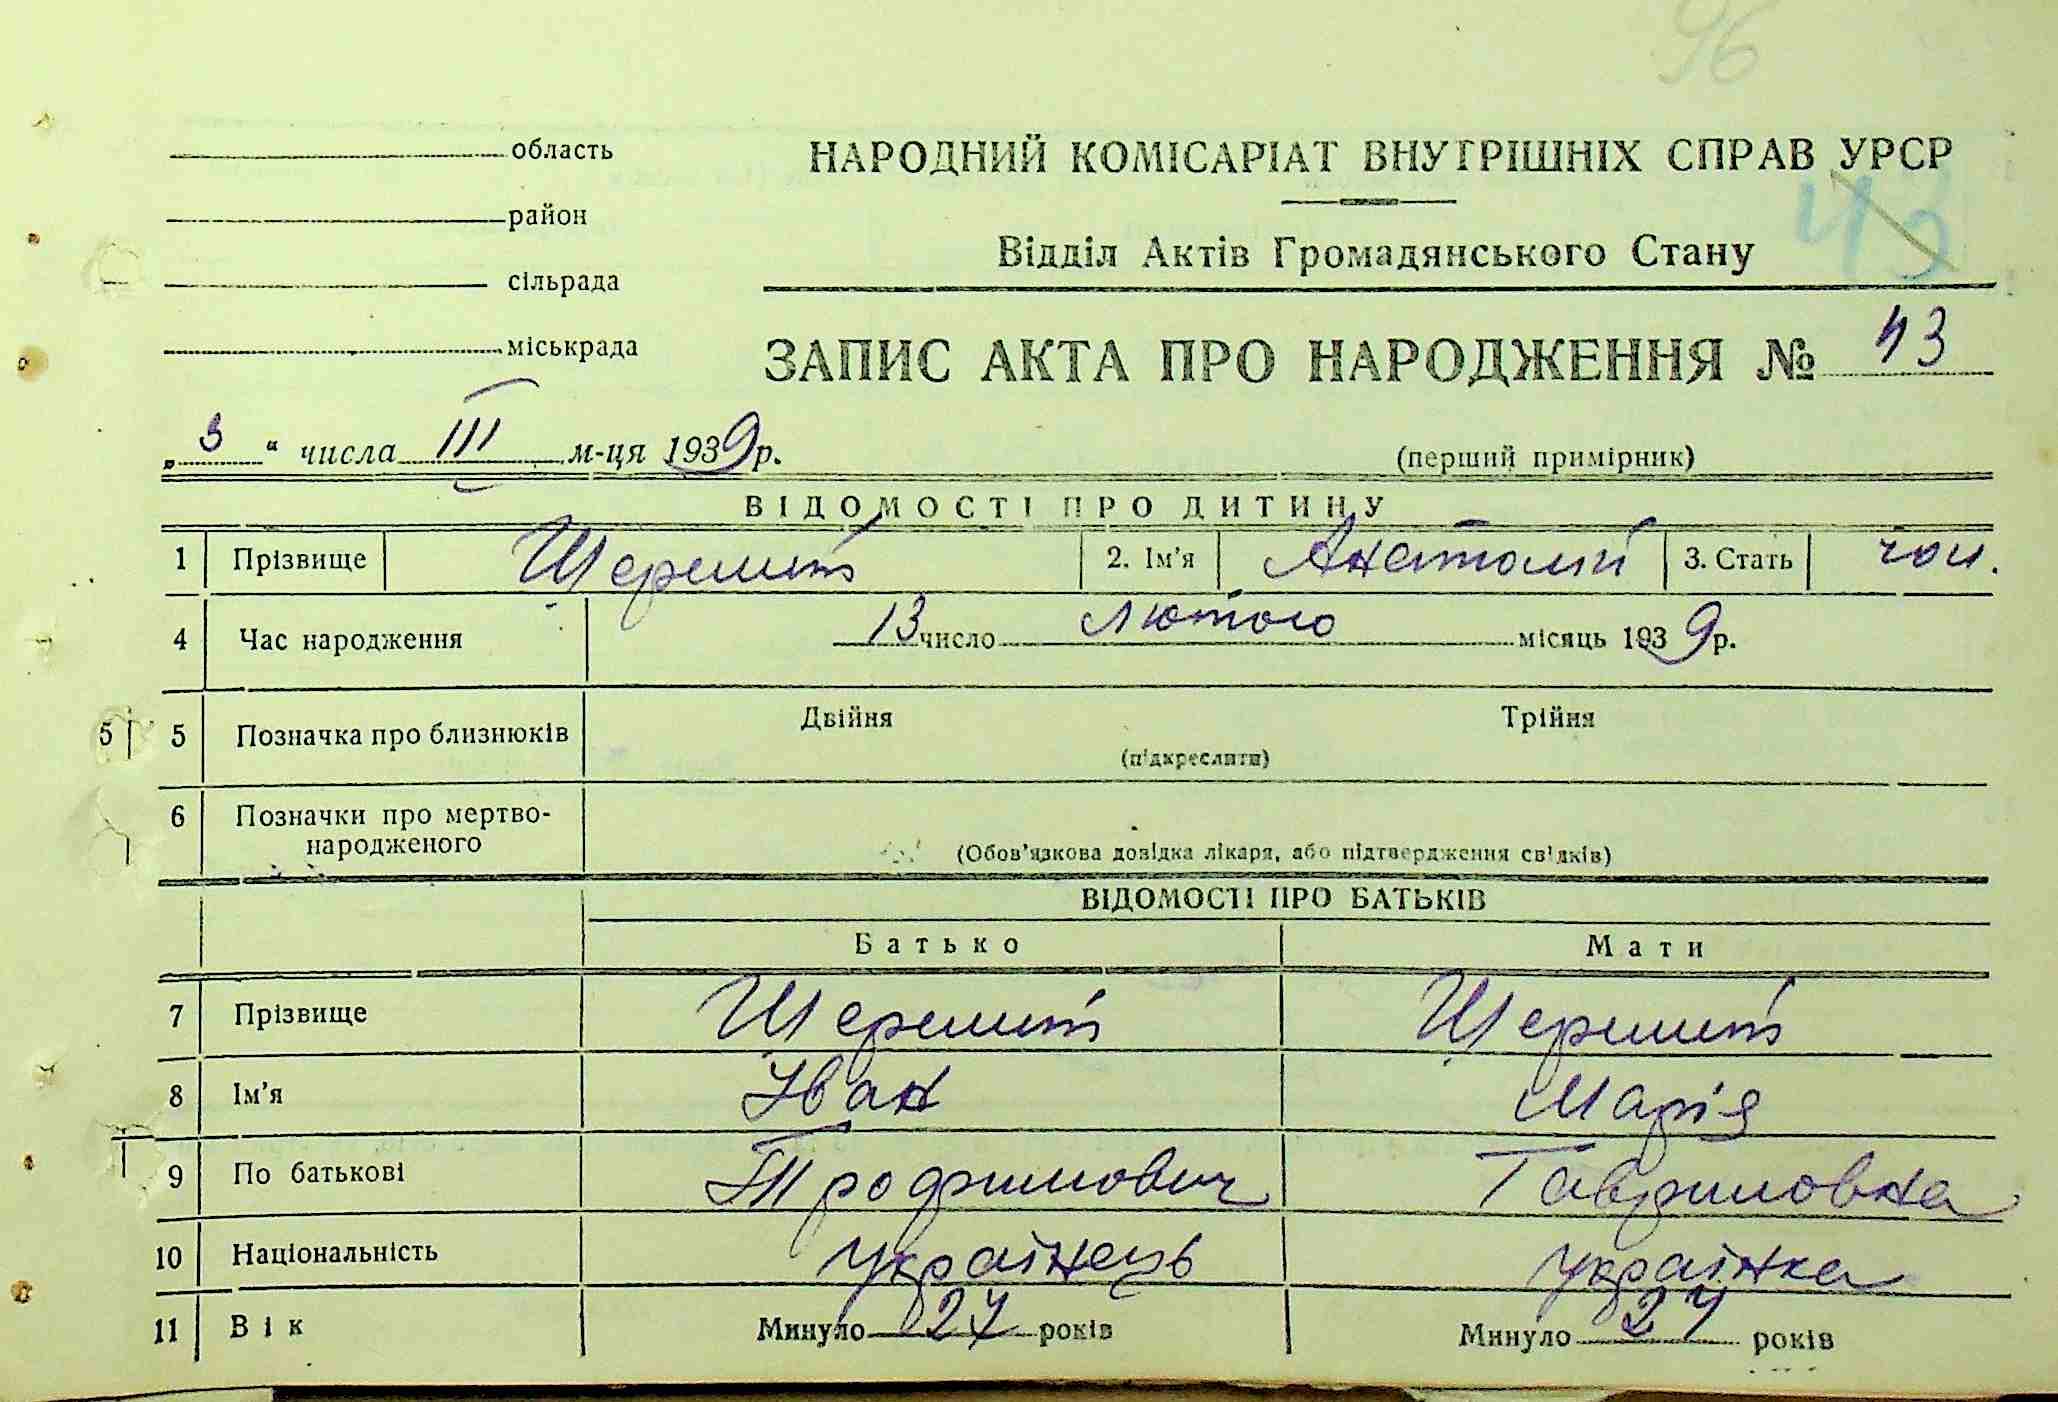 96
область НАРОДНИЙ КОМІСАРІАТ ВНУТРІШНІХ СПРАВ УРСР
район
43
Відділ Актів Громадянського Стану
сільрада
міськрада
ЗАПИС АКТА ПРО НАРОДЖЕННЯ № 43
„3“ числа III м-ця 1939 р.
(перший примірник)
ВІДОМОСТІ ПРО ДИТИНУ
1 Прізвище Шеремет 2. Ім'я Анатолій 3. Стать чол.
4 Час народження 13 число лютого місяць 1939 р.
5 5 Позначка про близнюків Двійня Трійня
(підкреслити)
6 Позначки про мертво-
народженого
(Обов'язкова довідка лікаря, або підтвердження свідків)
ВІДОМОСТІ ПРО БАТЬКІВ
Батько Мати
7 Прізвище Шеремет Шеремет
8 Ім'я Іван Марія
9 По батькові Трофимович Гавриловна
10 Національність українець українка
11 Вік Минуло 27 років Минуло 24 років